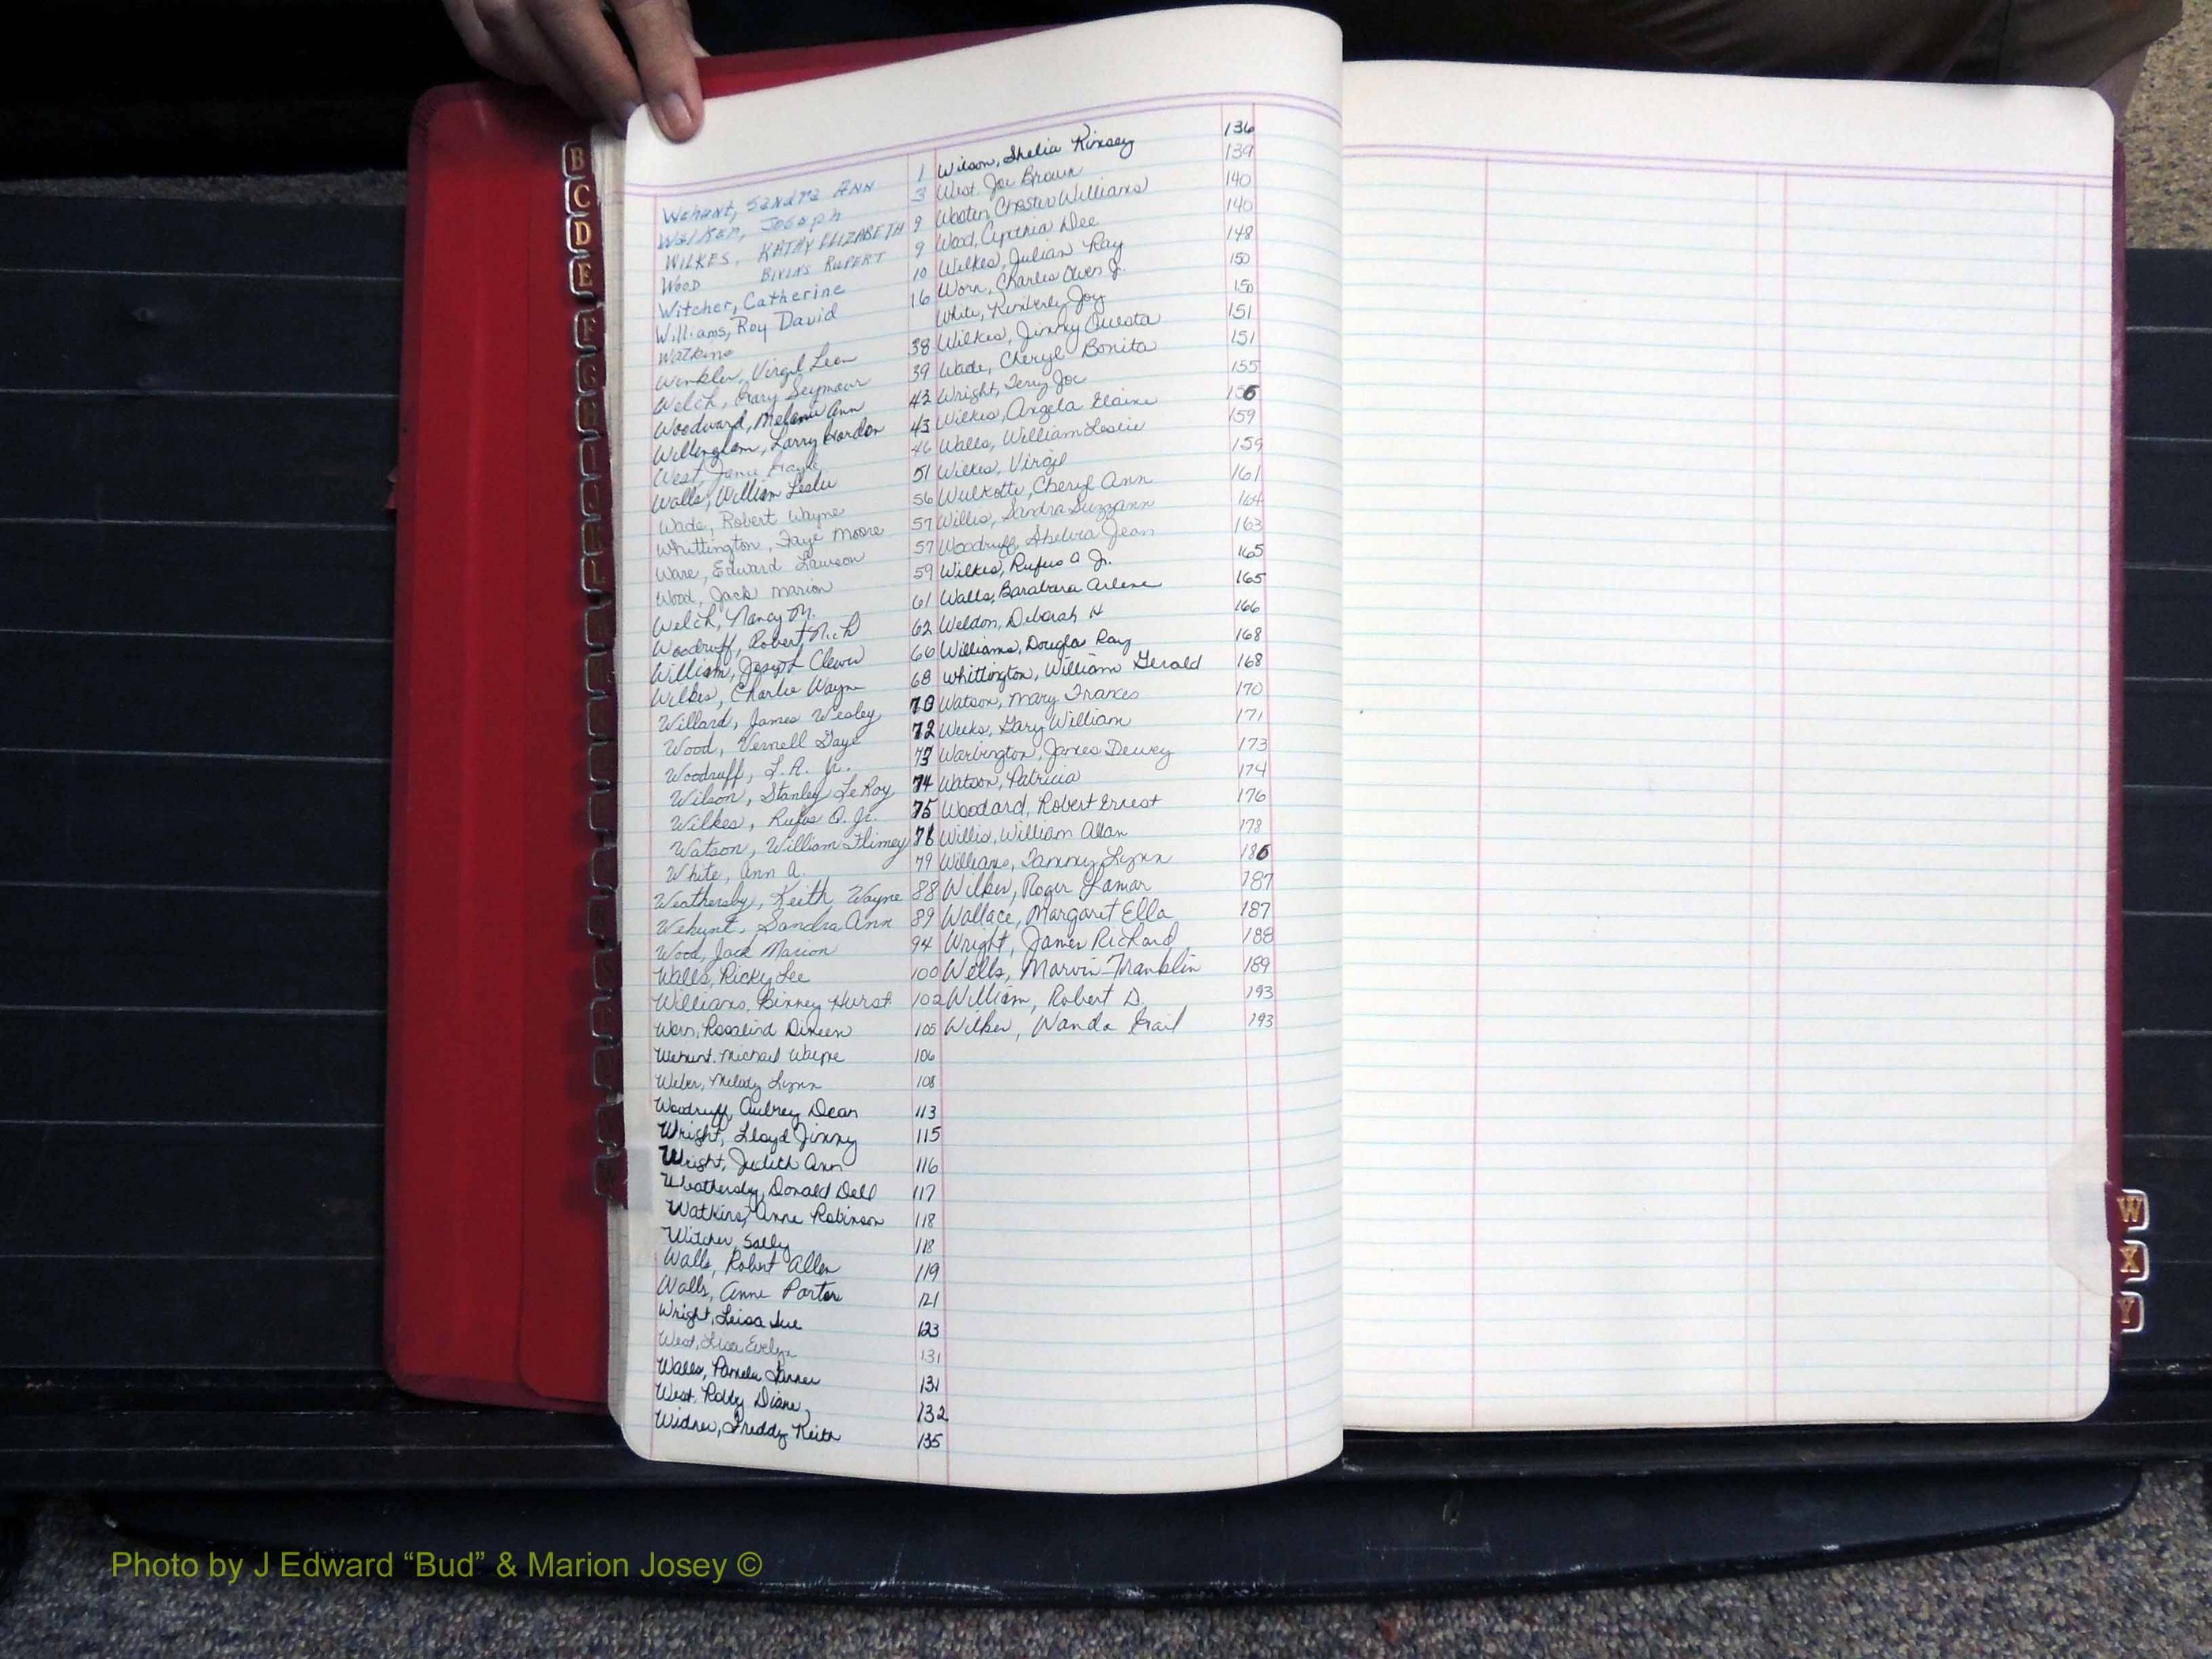 Wehunt, Sandra Ann 1
Walker, Joseph 3
WILKES, KATHY ELIZABETH 9
WOOD BIVINS RUPERT 9
Witcher, Catherine 10
Williams, Roy David 16
Watkins
Winkler, Virgil Leon 38
Welch, Gary Seymour 39
Woodward, Melanie Ann 42
Willingham, Larry Gordon 43
West, Janie Gayle 46
Walls, William Leslie 51
Wade, Robert Wayne 56
Whittington, Faye Moore 57
Ware, Edward Lawson 57
Wood, Jack Marion 59
Welch, Nancy M. 61
Woodruff, Robert Nich 62
William, Joseph Clevis 66
Wilkes, Charlie Wayne 68
Willard, James Wesley 70
Wood, Vernell Gaye 72
Woodruff, L.A. Jr. 73
Wilson, Stanley LeRoy 74
Wilkes, Rufus A. Jr. 75
Watson, William Flimey 76
White, Ann A. 79
Weathersby, Keith Wayne 88
Wehunt, Sandra Ann 89
Wood, Jack Marion 94
Walls, Ricky Lee 100
Williams, Binney Hurst 102
Worn, Rosalind Dineen 105
Wehunt, Michael Wayne 106
Weber, Melody Lynn 108
Woodruff, Aubrey Dean 113
Wright, Lloyd Jimmy 115
Wright, Judith Ann 116
Weathersby, Donald Dell 117
Watkins, Anne Robinson 118
Witcher, Sally 118
Walls, Robert Allen 119
Walls, Anne Porter 121
Wright, Leisa Sue 123
West, Lisa Evelyn 131
Walls, Pamela Lanner 131
West, Polly Diane 132
Widner, Freddy Keith 135
Wilson, Shelia Kinsey 136
West Joe Brown 139
Wooten, Chester Williams 140
Wood, Cynthia Dee 140
Wilkes, Julian Ray 148
Worn, Charles Owen Jr. 150
White, Kimberly Joy 150
Wilkes, Jimmy Questa 151
Wade, Cheryl Bonita 151
Wright, Terry Joe 155
Wilkes, Angela Elaine 156
Walls, William Leslie 159
Wilkes, Virgil 159
Wulkotte, Cheryl Ann 161
Willis, Sandra Suzzann 164
Woodruff, Shelvia Jean 163
Wilkes, Rufus A Jr. 165
Walls, Barabara Arlene 165
Weldon, Deborah H 166
Williams, Douglas Ray 168
Whittington, William Gerald 168
Watson, Mary Frances 170
Weeks, Gary William 171
Warbington, James Dewey 173
Watson, Patricia 174
Woodard, Robert Ernest 176
Willis, William Allan 178
Williams, Tammy Lynn 186
Wilkes, Roger Lamar 187
Wallace, Margaret Ella 187
Wright, James Richard 188
Wells, Marvin Franklin 189
William, Robert D. 193
Wilkes, Wanda Gail 193
B
C
D
E
F
G
H
I
J
K
L
W
X
Y
Photo by J Edward “Bud” & Marion Josey ©